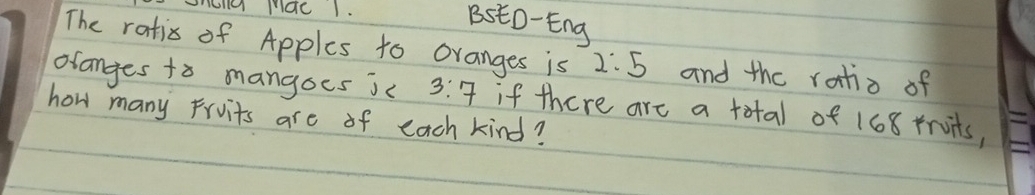 Mac 1.
BSED-Eng
The ratio of Apples to oranges is 2:5 and the ratio of
oranges to mangoes is 3:7 if there are a total of 168 fruits,
how many Fruits are of each kind?